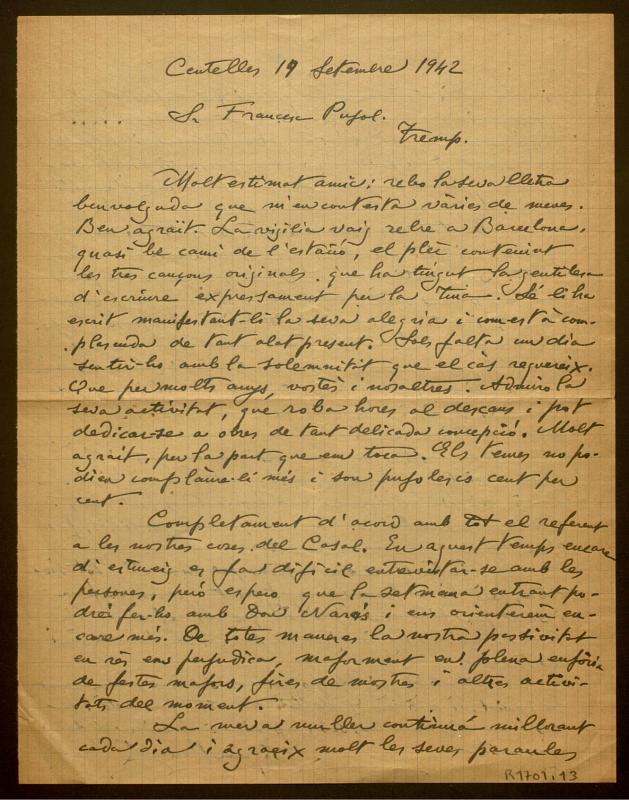 Centelles 19 Setembre 1942
..... Sr Francesc Pujol.
Tremp.
Molt estimat amic: rebo la seva lletra
benvolguda que m'en contesta vàries de meves.
Ben agraït. La vigilia vaig rebre a Barcelona,
quasi bé camí de l'estació, el plec contenint
les tres cançons originals, que ha tingut la gentilesa
d'escriure expressament per la Tina. Sé li ha
escrit manifestant-li la seva alegria i com està com-
plascuda de tant alat present. Sols falta un dia
sentir-ho amb la solemnitat que el càs requereix.
Que per molts anys, vostès i nosaltres. Admiro la
seva activitat, que roba hores al descans i pot
dedicar-se a obres de tant delicada concepció. Molt
agraït, per la part que em toca. Els temes no po-
dien complàure-li més i son pujolescs cent per
cent.
Completament d'acord amb tot el referent
a les nostres coses del Casal. En aquest temps encare
d'estiueig es fa difícil entrevistar-se amb les
persones, peró espero que la setmana entrant po-
dré fer-ho amb Don Narcís i ens orienterem en-
care mes. De totes maneres la nostra passivitat
en rés ens perjudica, majorment en plena eufòria
de festes majors, fires de mostres i altres activi-
tats del moment.
La meva muller continuá millorant
cada dia i agraeix molt les seves paraules
R1701.13